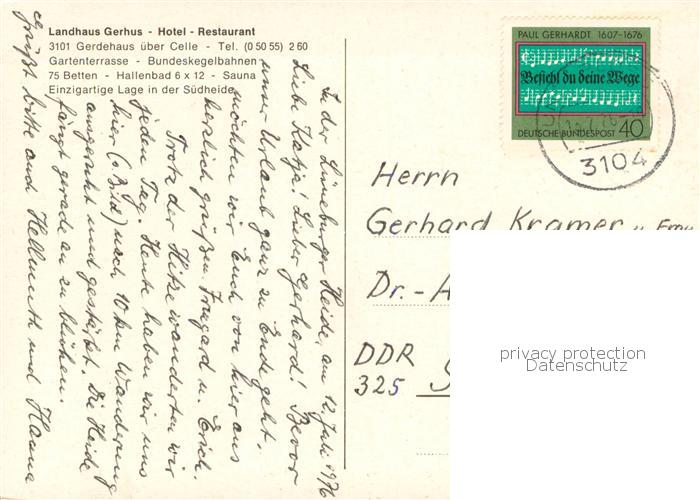 Landhaus Gerhus - Hotel - Restaurant
3101 Gerdehaus über Celle - Tel. (0 50 55) 2 60
Gartenterrasse - Bundeskegelbahnen
75 Betten - Hallenbad 6 x 12 - Sauna
Einzigartige Lage in der Südheide
In der Lüneburger Heide, am 12. Juli 1976
Liebe Katja! Lieber Gerhard! Bevor
unser Urlaub ganz zu Ende geht,
möchten wir Euch von hier aus
herzlich grüßen. Irmgard u. Erich.
Trotz der Hitze wanderten wir
jeden Tag. Heute haben wir uns
hier (s. Bild) nach 10 km Wanderung
ausgeruht und gestärkt. Die Heide
fängt gerade an zu blühen.
Grüßt bitte auch Hellmuth und Hanna
PAUL GERHARDT 1607-1676
Befiehl du deine Wege
DEUTSCHE BUNDESPOST 40
3104
Herrn
Gerhard Kramer u.
Dr.-
DDR
325
privacy protection
Datenschutz